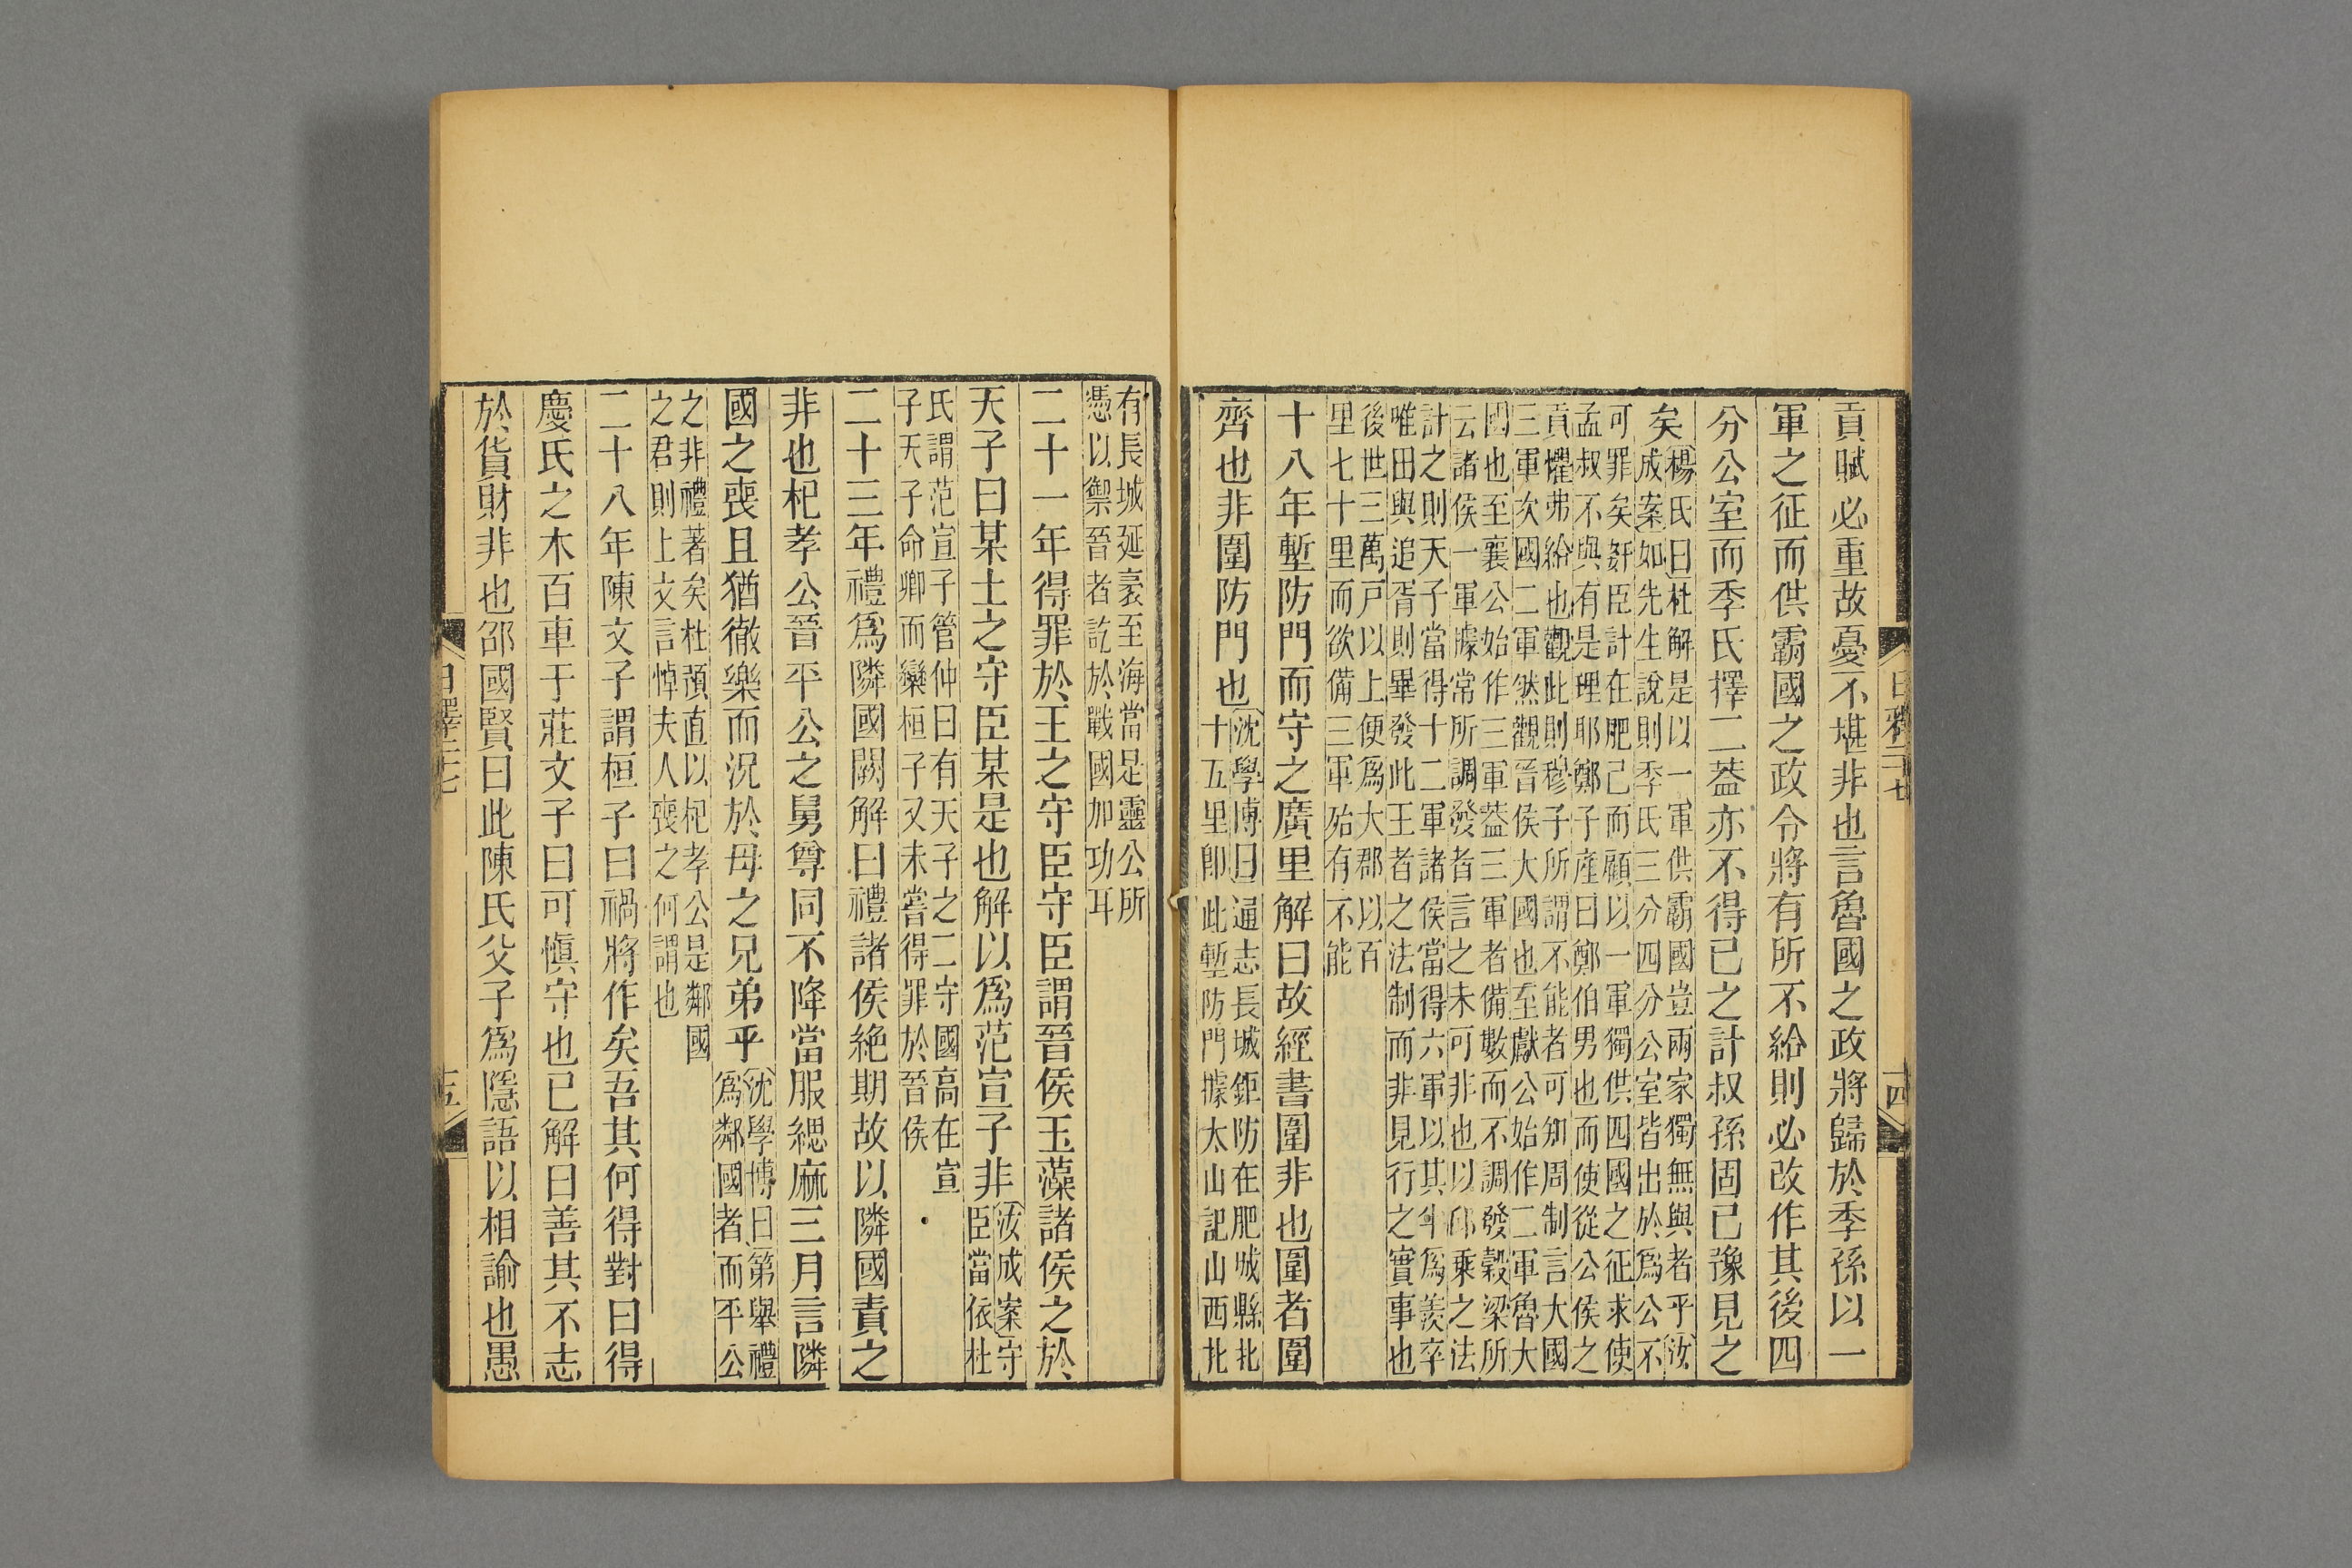 貢賦必重故憂不堪非也言魯國之政將歸於季孫以一
軍之征而供霸國之政令將有所不給則必改作其後四
分公室而季氏擇二葢亦不得已之計叔孫固已豫見之
矣
楊氏曰杜解是以一軍供霸國豈兩家獨無與者乎汝
成案如先生說則季氏三分四分公室皆出於爲公不
可罪矣奸臣計在肥己而顧以一軍獨供四國之征求使
孟叔不與有是理耶鄭子產曰鄭伯男也而使從公侯之
貢懼弗給也觀此則穆子所謂不能者可知周制言大國
三軍次國二軍然觀晉侯大國也至獻公始作二軍魯大
國也至襄公始作三軍葢三軍者備數而不調發穀梁所
云諸侯一軍據常所調發者言之未可非也以邱乘之法
計之則天子當得十二軍諸侯當得六軍以其半爲羨卒
唯田與追胥則畢發此王者之法制而非見行之實事也
後世三萬戸以上便爲大郡以百
里七十里而欲備三軍殆有不能
十八年塹防門而守之廣里解曰故經書圍非也圍者圍
齊也非圍防門也
沈學博曰通志長城鉅防在肥城縣北
十五里卽此塹防門據太山記山西北
日釋二十七
四
有長城延袤至海當是靈公所
憑以禦晉者訖於戰國加功耳
二十一年得罪於王之守臣守臣謂晉侯玉藻諸侯之於
天子曰某土之守臣某是也解以爲范宣子非
汝成案守
臣當依杜
氏謂范宣子管仲曰有天子之二守國高在宣
子天子命卿而欒桓子又未嘗得罪於晉侯
二十三年禮爲隣國闕解曰禮諸侯絶期故以隣國責之
非也杞孝公晉平公之舅尊同不降當服緦麻三月言隣
國之喪且猶徹樂而況於母之兄弟乎
沈學博曰第舉禮
爲鄰國者而平公
之非禮著矣杜預直以杞孝公是鄰國
之君則上文言悼夫人喪之何謂也
二十八年陳文子謂桓子曰禍將作矣吾其何得對曰得
慶氏之木百車于莊文子曰可愼守也已解曰善其不志
於貨財非也邵國賢曰此陳氏父子爲隱語以相諭也愚
日釋二十七
五